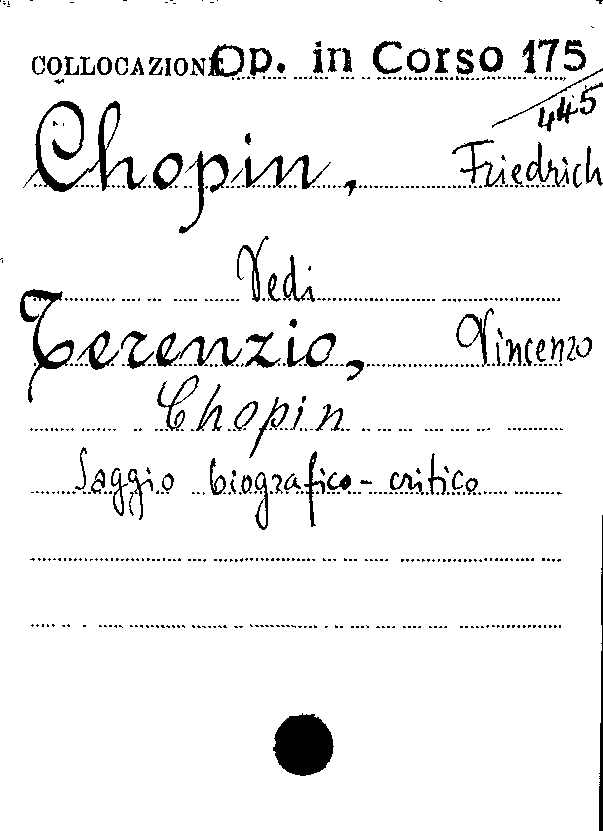 COLLOCAZIONE Op. in Corso 175
445
Chopin, Friedrich
Vedi
Terenzio, Vincenzo
Chopin
Saggio biografico-critico